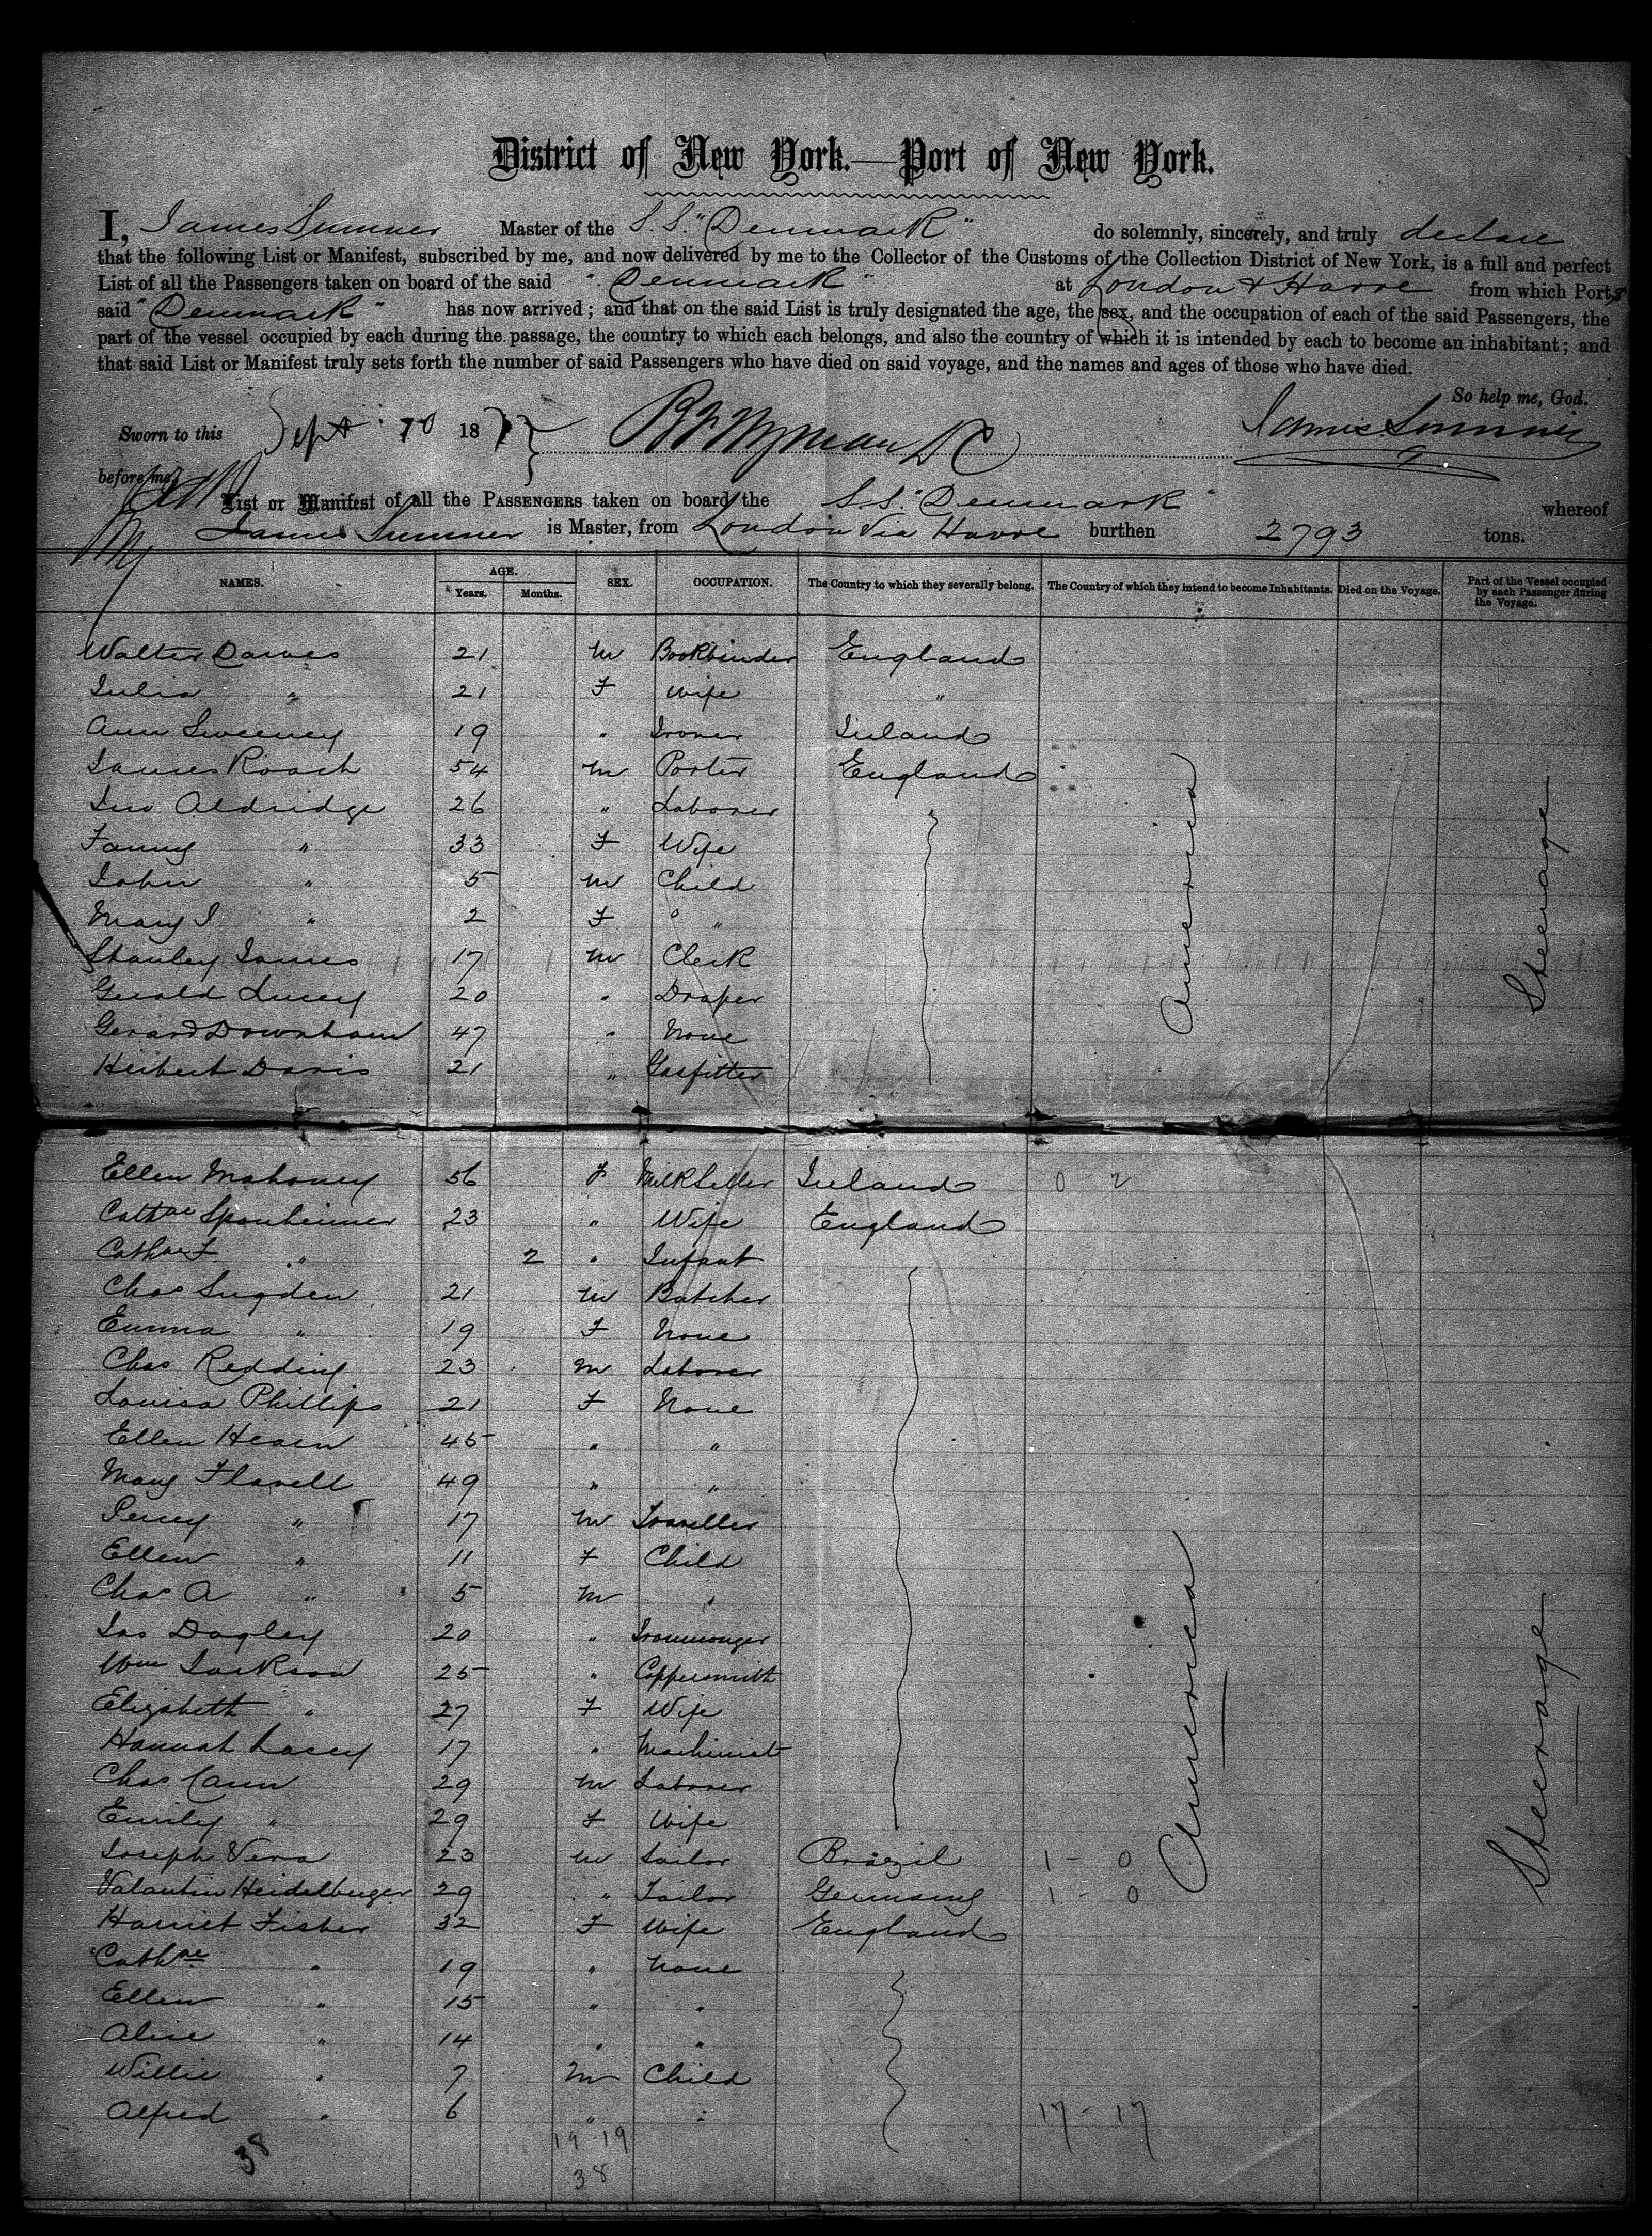 District of New York.—Port of New York.
I, James Sumner Master of the S.S. "Denmark" do solemnly, sincerely, and truly declare
that the following List or Manifest, subscribed by me, and now delivered by me to the Collector of the Customs of the Collection District of New York, is a full and perfect
List of all the Passengers taken on board of the said "Denmark" at London & Havre from which Ports
said "Denmark" has now arrived; and that on the said List is truly designated the age, the sex, and the occupation of each of the said Passengers, the
part of the vessel occupied by each during the passage, the country to which each belongs, and also the country of which it is intended by each to become an inhabitant; and
that said List or Manifest truly sets forth the number of said Passengers who have died on said voyage, and the names and ages of those who have died.
So help me, God.
Sworn to this Sept 18 James Sumner
before me
List or Manifest of all the PASSENGERS taken on board the S.S. "Denmark" whereof
James Sumner is Master, from London Via Havre burthen 2793 tons.
NAMES. AGE. Years. Months. SEX. OCCUPATION. The Country to which they severally belong. The Country of which they intend to become Inhabitants. Died on the Voyage. Part of the Vessel occupied by each Passenger during the Voyage.
Walter Dawes 21 M Bookbinder England
Julia " 21 F Wife "
Ann Sweeney 19 " Ironer Ireland
James Roach 54 M Porter England
Jno Aldridge 26 " Laborer
Fanny " 33 F Wife
John " 5 M Child
Mary J " 2 F " "
Stanley James 17 M Clerk
Gerald Lucey 20 " Draper
Gerard Downham 47 " None
Herbert Davis 21 " Gasfitter
America
Steerage
Ellen Mahoney 56 F Milkseller Ireland 0 2
Cathne Sponheimer 23 " Wife England
Cathne F " 2 " Infant
Chas Sugden 21 M Butcher
Emma " 19 F None
Chas Redding 23 M Laborer
Louisa Phillips 21 F None
Ellen Hearn 45 " "
Mary Flavell 49 " "
Percy " 17 M Traveller
Ellen " 11 F Child
Chas A " 5 M "
Jas Dagley 20 " Ironmonger
Wm Jackson 25 " Coppersmith
Elizabeth " 27 F Wife
Hannah Lacey 17 " Machinist
Chas Cann 29 M Laborer
Emily " 29 F Wife
Joseph Vera 23 M Sailor Brazil 1 - 0
Valantin Heidelberger 29 " Tailor Germany 1 - 0
Harriet Fisher 32 F Wife England
Cathne " 19 " None
Ellen " 15 " "
Alice " 14 " "
Willie " 7 M Child
Alfred " 6 " " 17 - 17
America
Steerage
38 19 19
38